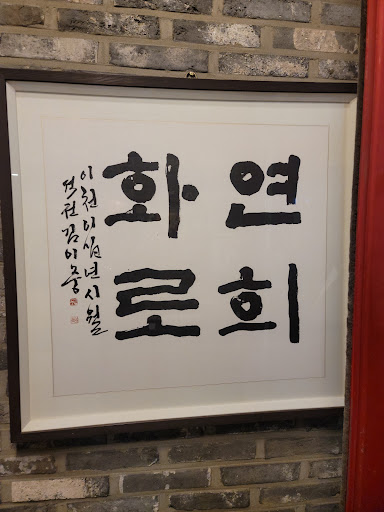 연희
화로
이천이십년시월
김이중